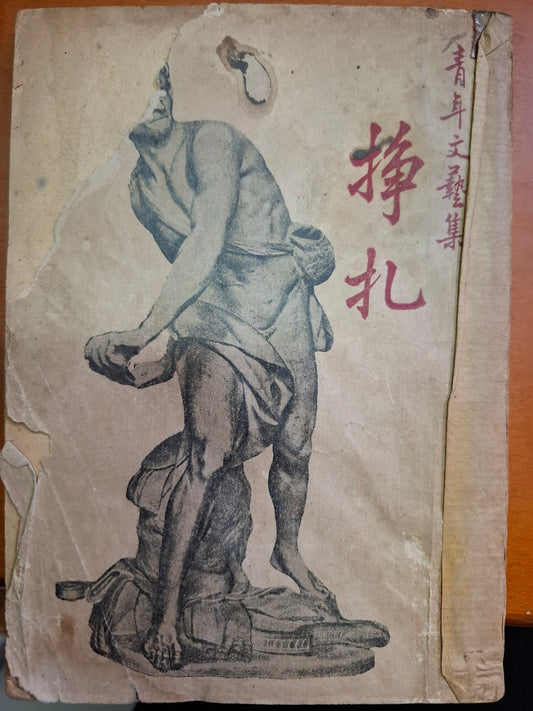 青年文藝集
掙扎